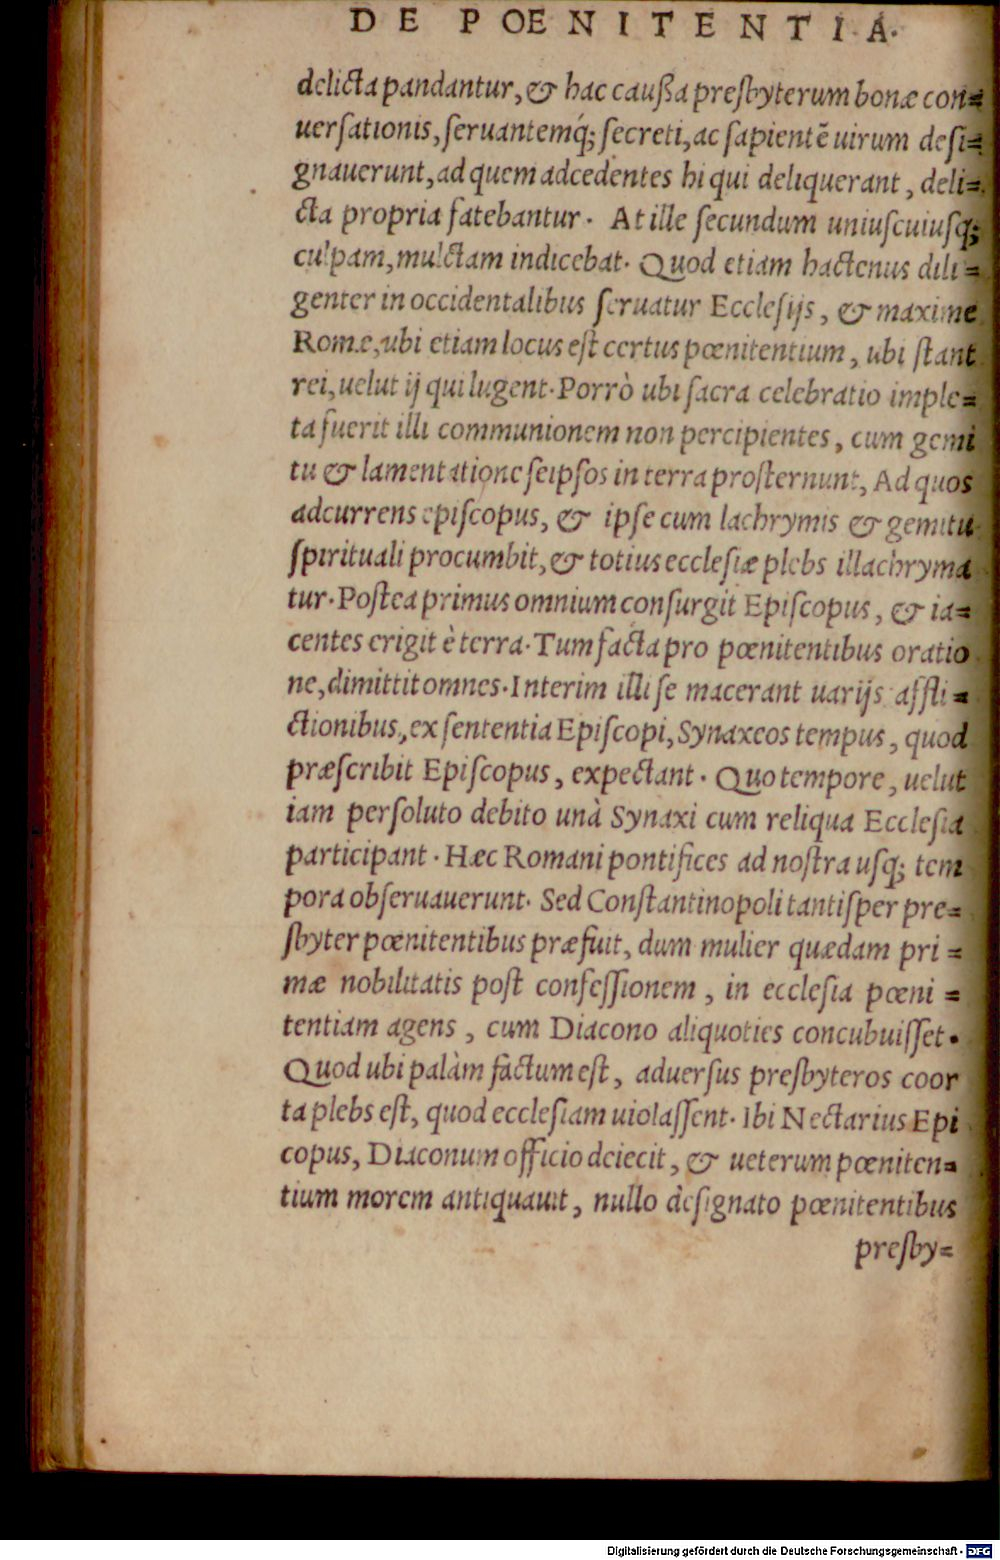 DE POENITENTIA.
delicta pandantur, & hac caußa presbyterum bonæ con=
uersationis, seruantemq́; secreti, ac sapientẽ uirum desi=
gnauerunt, ad quem adcedentes hi qui deliquerant, deli=
cta propria fatebantur. At ille secundum uniuscuiusq;
culpam, mulctam indicebat. Quod etiam hactenus dili=
genter in occidentalibus seruatur Ecclesijs, & maxime
Romæ, ubi etiam locus est certus pœnitentium, ubi stant
rei, uelut ij qui lugent. Porrò ubi sacra celebratio imple=
ta fuerit illi communionem non percipientes, cum gemi
tu & lamentatione seipsos in terra prosternunt, Ad quos
adcurrens episcopus, & ipse cum lachrymis & gemitu
spirituali procumbit, & totius ecclesiæ plebs illachryma
tur. Postea primus omnium consurgit Episcopus, & ia=
centes erigit è terra. Tum facta pro pœnitentibus oratio
ne, dimittit omnes. Interim illi se macerant uarijs affli=
ctionibus, ex sententia Episcopi, Synaxeos tempus, quod
præscribit Episcopus, expectant. Quo tempore, uelut
iam persoluto debito unà Synaxi cum reliqua Ecclesia
participant. Hæc Romani pontifices ad nostra usq; tem
pora obseruauerunt. Sed Constantinopoli tantisper pre=
sbyter pœnitentibus præfuit, dum mulier quædam pri=
mæ nobilitatis post confessionem, in ecclesia pœni=
tentiam agens, cum Diacono aliquoties concubuisset.
Quod ubi palàm factum est, aduersus presbyteros coor
ta plebs est, quod ecclesiam uiolassent. Ibi Nectarius Epi
copus, Diaconum officio deiecit, & ueterum pœniten=
tium morem antiquauit, nullo designato pœnitentibus
presby=
Digitalisierung gefördert durch die Deutsche Forschungsgemeinschaft - DFG